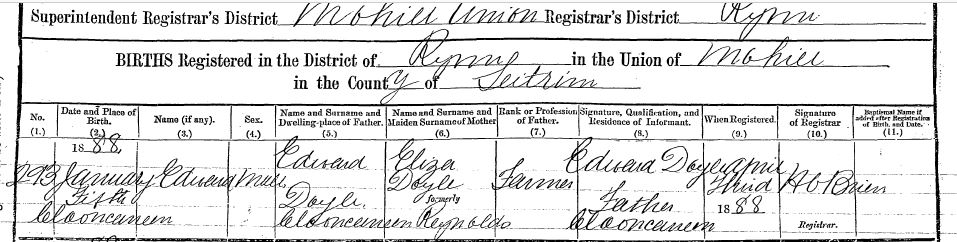 Superintendent Registrar's District Mohill Union Registrar's District Rynn
BIRTHS Registered in the District of Rynn in the Union of Mohill
in the County of Leitrim
No. (1.) Date and Place of Birth. (2.) Name (if any). (3.) Sex. (4.) Name and Surname and Dwelling-place of Father. (5.) Name and Surname and Maiden Surname of Mother (6.) Rank or Profession of Father. (7.) Signature, Qualification, and Residence of Informant. (8.) When Registered. (9.) Signature of Registrar (10.) Baptismal Name if added after Registration of Birth, and Date. (11.)
1888 Edward Eliza Edward Doyle April
293 January Edward Male Doyle Farmer Third
Fifth Doyle formerly Father 1888
Clooncannen Clooncannen Reynolds Clooncannen Registrar.